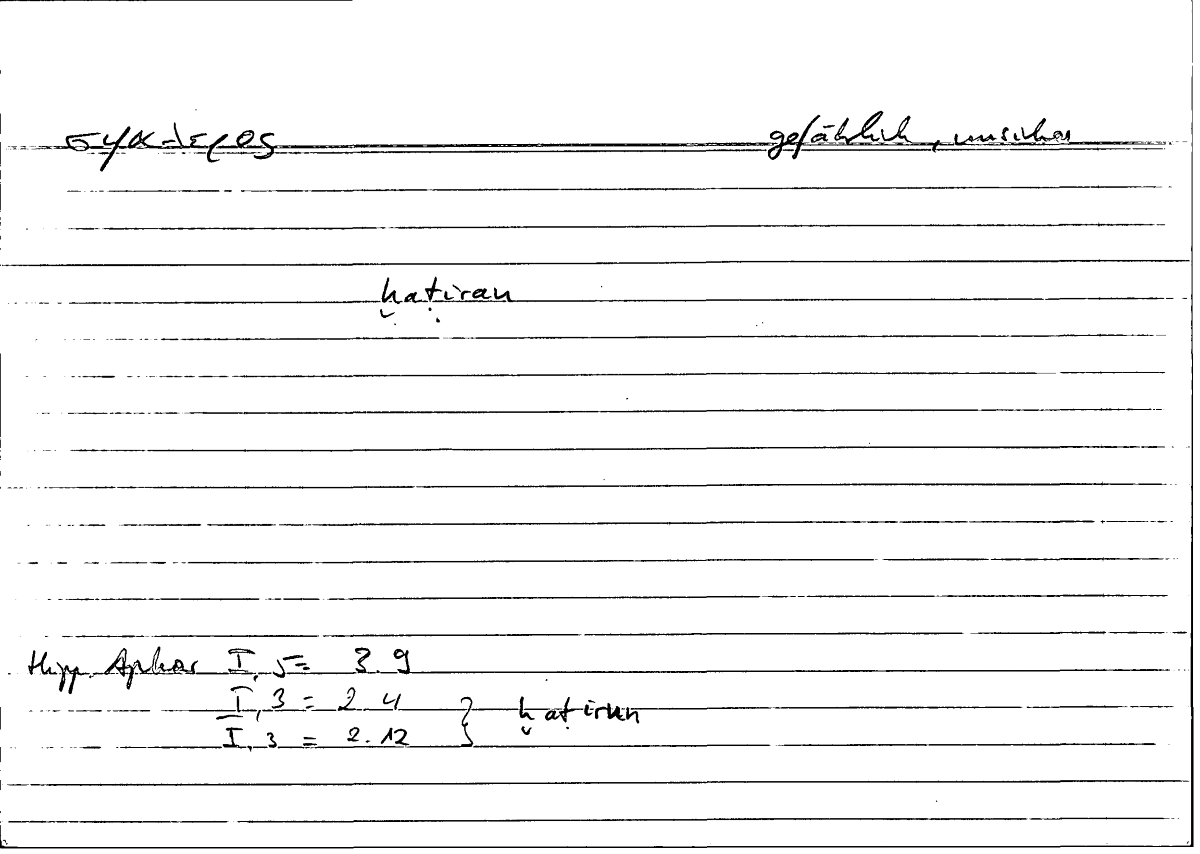 σφαλερος gefährlich, unsicher
ḫaṭiran
Hipp. Aphor I, 5 = 3. 9
I, 3 = 2. 4
I, 3 = 2. 12 } ḫaṭirun